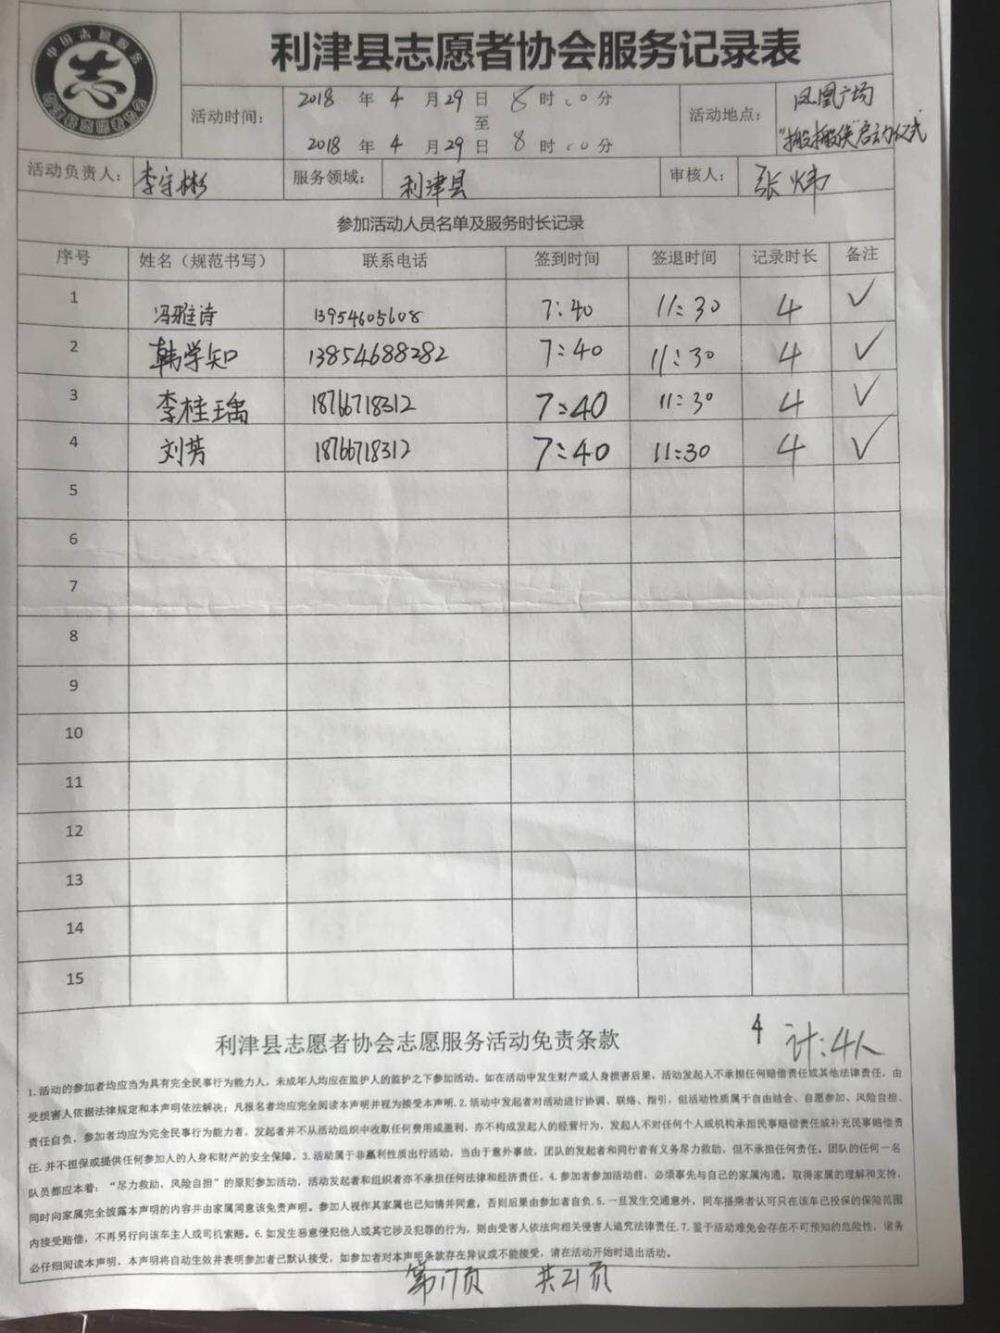 中国志愿服务
志
利津县志愿者协会服务记录表
活动时间：
2018 年 4 月 29 日 8 时 00 分
至
2018 年 4 月 29 日 8 时 00 分
活动地点：
凤凰广场
"搬搬侠"启动仪式
活动负责人： 李守彬 服务领域： 利津县 审核人： 张炜
参加活动人员名单及服务时长记录
序号 姓名（规范书写） 联系电话 签到时间 签退时间 记录时长 备注
1 冯雅诗 13954605608 7:40 11:30 4 ✓
2 韩学知 13854688282 7:40 11:30 4 ✓
3 李桂瑀 18766718312 7:40 11:30 4 ✓
4 刘芳 18766718312 7:40 11:30 4 ✓
5
6
7
8
9
10
11
12
13
14
15
利津县志愿者协会志愿服务活动免责条款 4 计:4人
1.活动的参加者均应当为具有完全民事行为能力人，未成年人均应在监护人的监护之下参加活动。如在活动中发生财产或人身损害后果，活动发起人不承担任何赔偿责任或其他法律责任，由
受损害人依据法律规定和本声明依法解决；凡报名者均应完全阅读本声明并视为接受本声明.2.活动中发起者对活动进行协调、联络、指引，但活动性质属于自由结合、自愿参加、风险自担、
责任自负，参加者均应为完全民事行为能力者，发起者并不从活动组织中收取任何费用或盈利，亦不构成发起人的经营行为，发起人不对任何个人或机构承担民事赔偿责任或补充民事赔偿责
任.并不担保或提供任何参加人的人身和财产的安全保障。3.活动属于非赢利性质出行活动，当由于意外事故，团队的发起者和同行者有义务尽力救助，但不承担任何责任。团队的任何一名
队员都应本着：“尽力救助、风险自担”的原则参加活动，活动发起者和组织者亦不承担任何法律和经济责任。4.参加者参加活动前，必须事先与自己的家属沟通，取得家属的理解和支持，
同时向家属完全披露本声明的内容并由家属同意该免责声明。参加人视作其家属也已知情并同意，否则后果由参加者自负.5.一旦发生交通意外，同车搭乘者认可只在该车已投保的保险范围
内接受赔偿，不再另行向该车主人或司机索赔。6.如发生恶意侵犯他人或其它涉及犯罪的行为，则由受害人依法向相关侵害人追究法律责任。7.鉴于活动难免会存在不可预知的危险性，请务
必仔细阅读本声明，本声明将自动生效并表明参加者已默认接受，如参加者对本声明条款存在异议或不能接受，请在活动开始时退出活动。
第17页 共21页